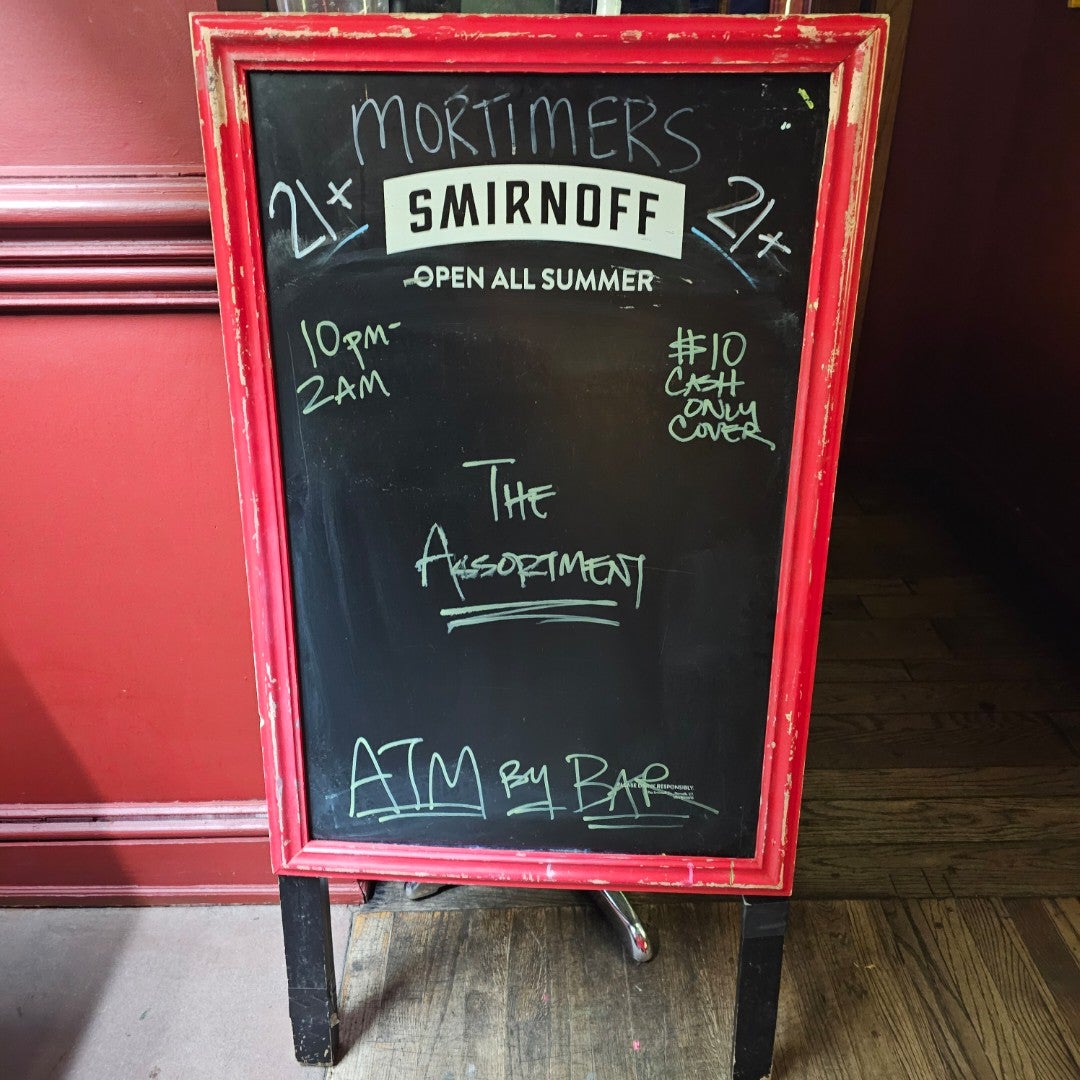 MORTIMERS
21+
SMIRNOFF
21+
OPEN ALL SUMMER
10PM-
2AM
#10
CASH
ONLY
COVER
THE
ASSORTMENT
ATM BY BAR
RESPONSIBLY.